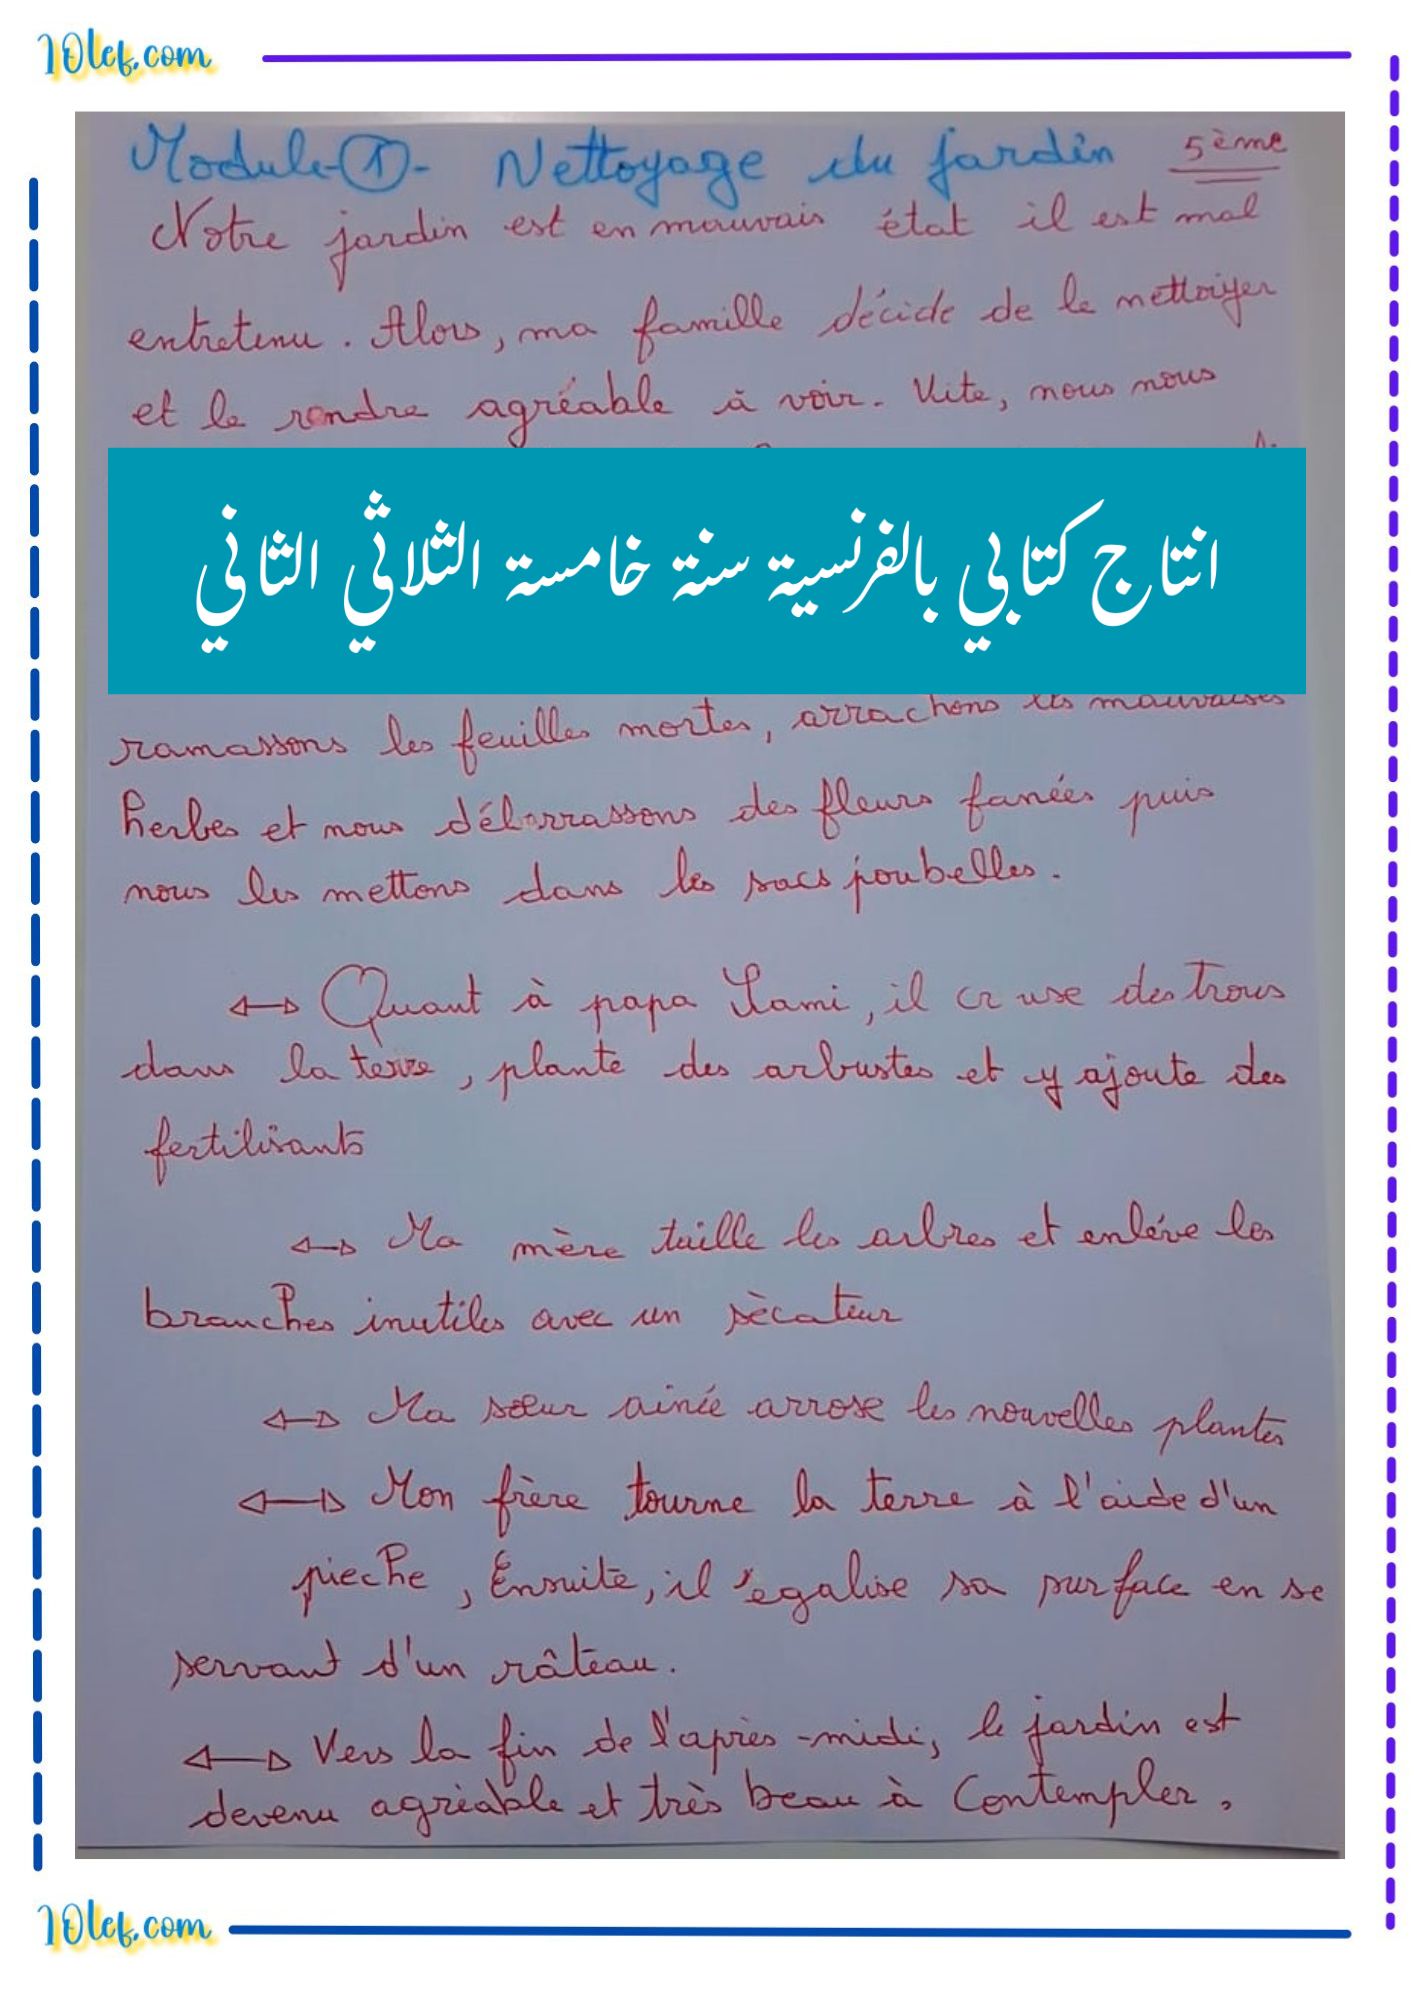 10lef.com
Module-①- Nettoyage du jardin 5ème
Notre jardin est en mauvais état il est mal
entretenu. Alors, ma famille décide de le nettoiyer
et le rendre agréable à voir. Vite, nous nous
انتاج كتابي بالفرنسية سنة خامسة الثلاثي الثاني
ramassons les feuilles mortes, arrachons les mauvaises
herbes et nous débarrassons des fleurs fanées puis
nous les mettons dans les sacs poubelles.
↔ Quant à papa Sami, il creuse des trous
dans la terre, plante des arbustes et y ajoute des
fertilisants
↔ Ma mère taille les arbres et enléve les
branches inutiles avec un sècateur
↔ Ma sœur ainée arrose les nouvelles plantes
↔ Mon frère tourne la terre à l'aide d'un
pieche, Ensuite, il égalise sa surface en se
servant d'un râteau.
↔ Vers la fin de l'après-midi, le jardin est
devenu agréable et très beau à Contempler.
10lef.com